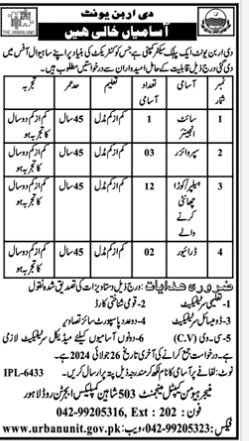 دی اربن یونٹ
THE URBAN UNIT
آسامیاں خالی ہیں
دی اربن یونٹ ایک پبلک سیکٹر کمپنی ہے جس کو کنٹریکٹ کی بنیاد پر اپنے ساہیوال آفس میں
دی گئی درج ذیل قابلیت کے حامل امیدواران سے درخواستیں مطلوب ہیں۔
نمبر شمار | آسامی | تعداد آسامی | تعلیم | حد عمر | تجربہ
1 | سائٹ انجینئر | 1 | کم از کم مڈل | 45 سال | کم از کم دو سال کا تجربہ ہو
2 | سپروائزر | 03 | کم از کم مڈل | 45 سال | کم از کم دو سال کا تجربہ ہو
3 | ہیلپر/کوڑا چھانٹی کرنے والے | 12 | کم از کم مڈل | 45 سال | کم از کم دو سال کا تجربہ ہو
4 | ڈرائیور | 02 | کم از کم مڈل | 45 سال | کم از کم دو سال کا تجربہ ہو
ضروری ہدایات: درج ذیل دستاویزات کی تصدیق شدہ نقول
1- تعلیمی سرٹیفکیٹ 2- قومی شناختی کارڈ
3- ڈومیسائل سرٹیفکیٹ 4- دو عدد پاسپورٹ سائز تصاویر
5- سی۔وی (C.V) 6- دونوں آسامیوں کیلئے میڈیکل سرٹیفکیٹ لازمی
ہے۔ درخواست جمع کرانے کی آخری تاریخ 26 جولائی 2024 ہے۔
نوٹ: لفافے پر آسامی کا نام لکھ کر مندرجہ ذیل پتہ پر ارسال کریں۔ IPL-6433
منیجر ہیومن کیپٹل مینجمنٹ 503 شاہین کمپلیکس ایجرٹن روڈ لاہور
فون : 042-99205316, Ext : 202
فیکس: 042-99205323 ویب سائٹ: www.urbanunit.gov.pk